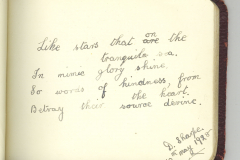 on
Like stars that are the
tranquile sea.
In mimic glory shine
So words of kindness, from
the heart.
Betray their source devine.
D. Sharpe.
May 1925